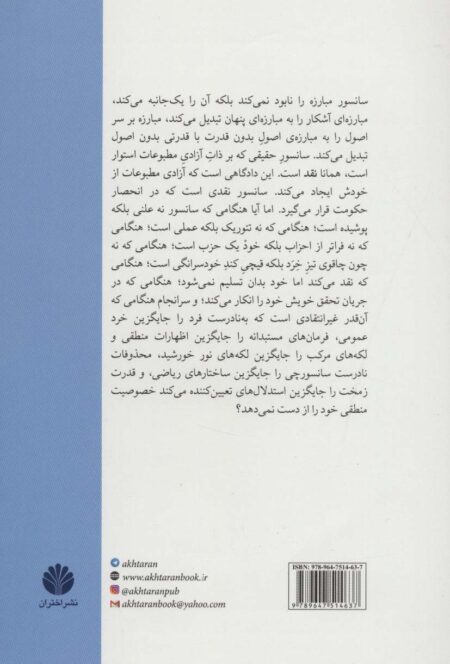 سانسور مبارزه را نابود نمی‌کند بلکه آن را یک‌جانبه می‌کند،
مبارزه‌ای آشکار را به مبارزه‌ای پنهان تبدیل می‌کند، مبارزه بر سر
اصول را به مبارزه‌ی اصولِ بدون قدرت با قدرتی بدون اصول
تبدیل می‌کند. سانسور حقیقی که بر ذاتِ آزادیِ مطبوعات استوار
است، همانا نقد است. این دادگاهی است که آزادی مطبوعات از
خودش ایجاد می‌کند. سانسور نقدی است که در انحصار
حکومت قرار می‌گیرد. اما آیا هنگامی که سانسور نه علنی بلکه
پوشیده است؛ هنگامی که نه تئوریک بلکه عملی است؛ هنگامی
که نه فراتر از احزاب بلکه خودْ یک حزب است؛ هنگامی که نه
چون چاقوی تیزِ خِرَد بلکه قیچیِ کندِ خودسرانگی است؛ هنگامی
که نقد می‌کند اما خود بدان تسلیم نمی‌شود؛ هنگامی که در
جریان تحقق خویش خود را انکار می‌کند؛ و سرانجام هنگامی که
آن‌قدر غیرانتقادی است که به‌نادرست فرد را جایگزین خرد
عمومی، فرمان‌های مستبدانه را جایگزین اظهارات منطقی و
لکه‌های مرکب را جایگزین لکه‌های نور خورشید، محذوفات
نادرست سانسورچی را جایگزین ساختارهای ریاضی، و قدرت
زمخت را جایگزین استدلال‌های تعیین‌کننده می‌کند خصوصیت
منطقی خود را از دست نمی‌دهد؟
akhtaran
www.akhtaranbook.ir
@akhtaranpub
akhtaranbook@yahoo.com
ISBN: 978-964-7514-63-7
9 789647 514637
نشر اختران